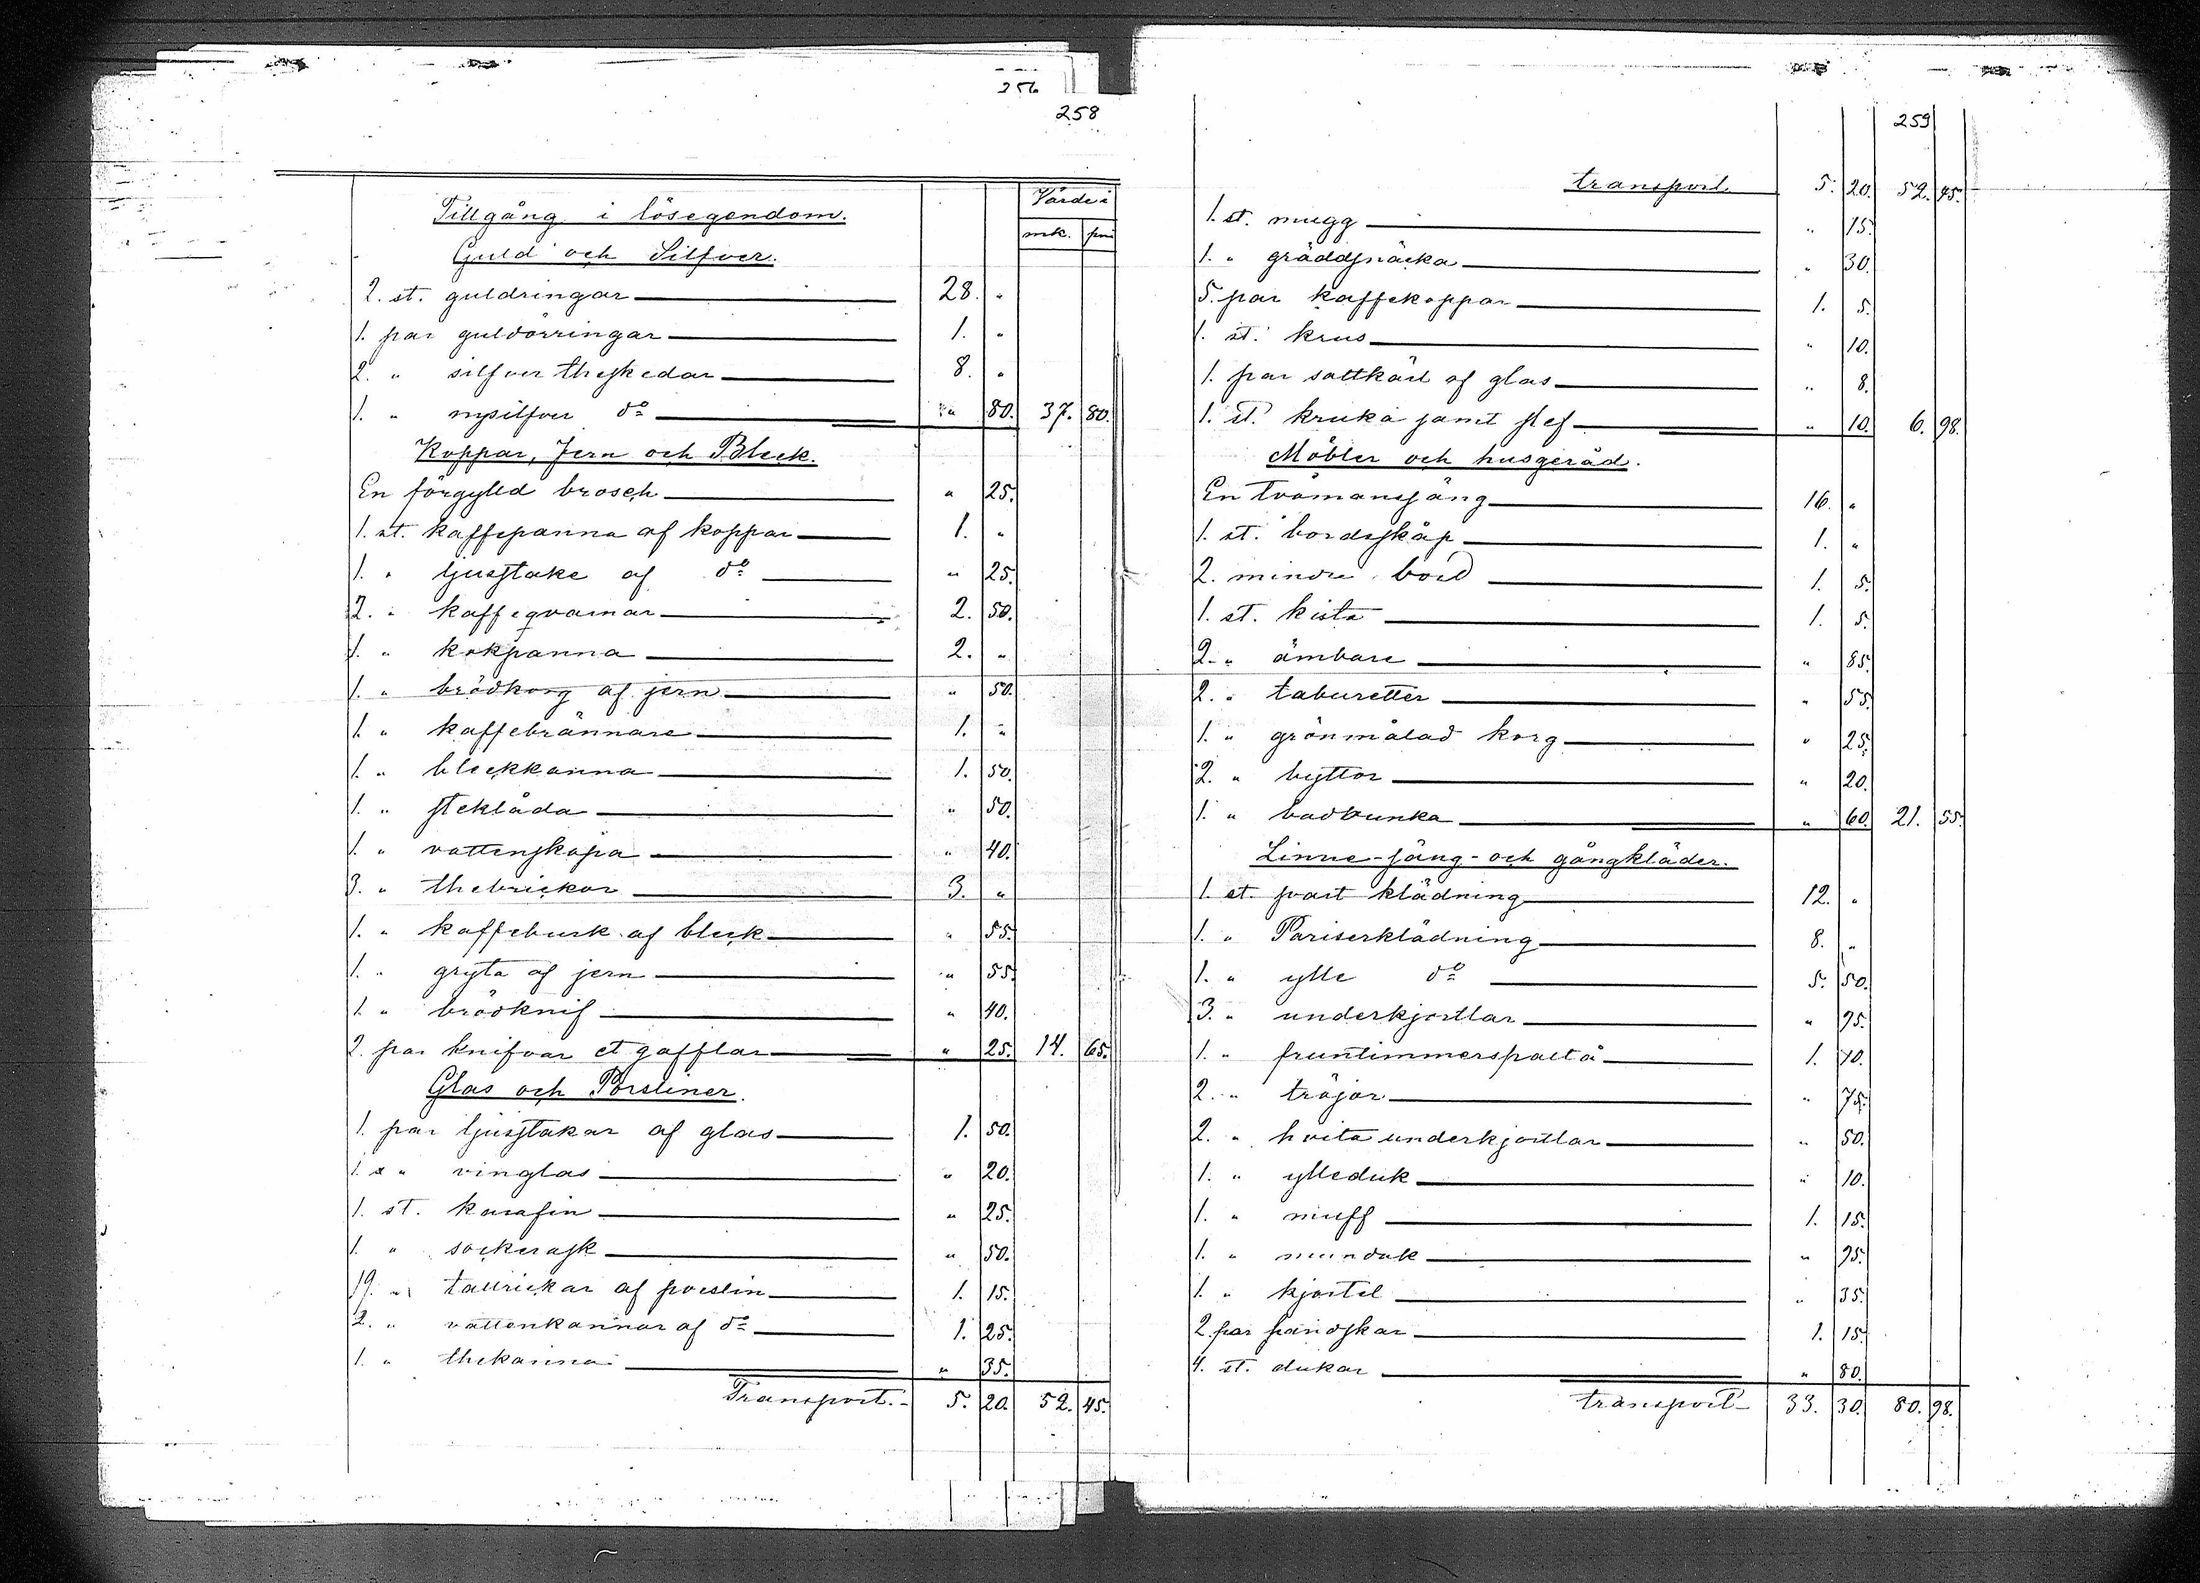 256
258
Värde i
Tillgång i lösegendom.
mk. pni
Guld och Silfver.
2. st. guldringar 28. "
1. par guldörringar 1. "
2. " silfver theskedar 8. "
1. " nysilfver do " 80. 37. 80.
Koppar, Jern och Bleck.
En förgylld brosch " 25.
1. st. kaffepanna af koppar 1. "
1. " ljusstake af do " 25.
2. " kaffeqvarnar 2. 50.
1. " kokpanna 2. "
1. " brödkorg af jern " 50.
1. " kaffebrännare 1. "
1. " bleckkanna 1. 50.
1. " steklåda " 50.
1. " vattenskåpa " 40.
3. " thebrickor 3. "
1. " kaffeburk af bleck " 55.
1. " gryta af jern " 55.
1. " brödknif " 40.
2. par knifvar et gafflar " 25. 14. 65.
Glas och Porsliner.
1. par ljusstakar af glas 1. 50.
1. " vinglas " 20.
1. st. karafin " 25.
1. " sockerask " 50.
19. " tallrickar af porslin 1. 15.
2. " vattenkannor af do 1. 25.
1. " thekanna " 35.
Transport. 5. 20. 52. 45.
259
transport. 5. 20. 52. 45.
1. st. mugg " 15.
1. " gräddsnäcka " 30.
5. par kaffekoppar 1. 5.
1. st. krus " 10.
1. par saltkärl af glas " 8.
1. st. kruka samt slef " 10. 6. 98.
Möbler och husgeråd.
En tvåmanssäng 16. "
1. st. bordsskåp 1. "
2. mindre bord 1. 5.
1. st. kista 1. 5.
2. " ämbare " 85.
2. " taburetter " 55.
1. " grönmålad korg " 25.
2. " byttor " 20.
1. " badbunka " 60. 21. 55.
Linne- säng- och gångkläder.
1. st. svart klädning 12. "
1. " Pariserklädning 8. "
1. " ylle do 5. 50.
3. " underkjortlar " 95.
1. " fruntimmerspaltå 1. 10.
2. " tröjor " 75.
2. " hvita underkjortlar " 50.
1. " ylleduk " 10.
1. " muff 1. 15.
1. " munduk " 95.
1. " kjortel " 35.
2 par handskar 1. 15.
4. st. dukar " 80.
transport 33. 30. 80. 98.